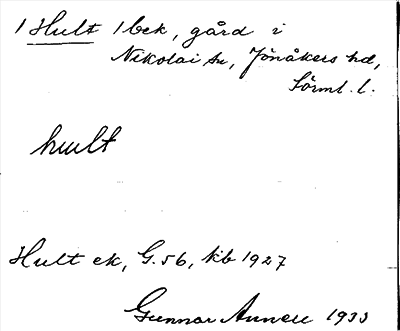 1 Hult 1 bek, gård i
Nikolai sn, Jönåkers hd,
Sörml. l.
hult
Hult ek, G. 56, kb 1927
Gunnar 1933